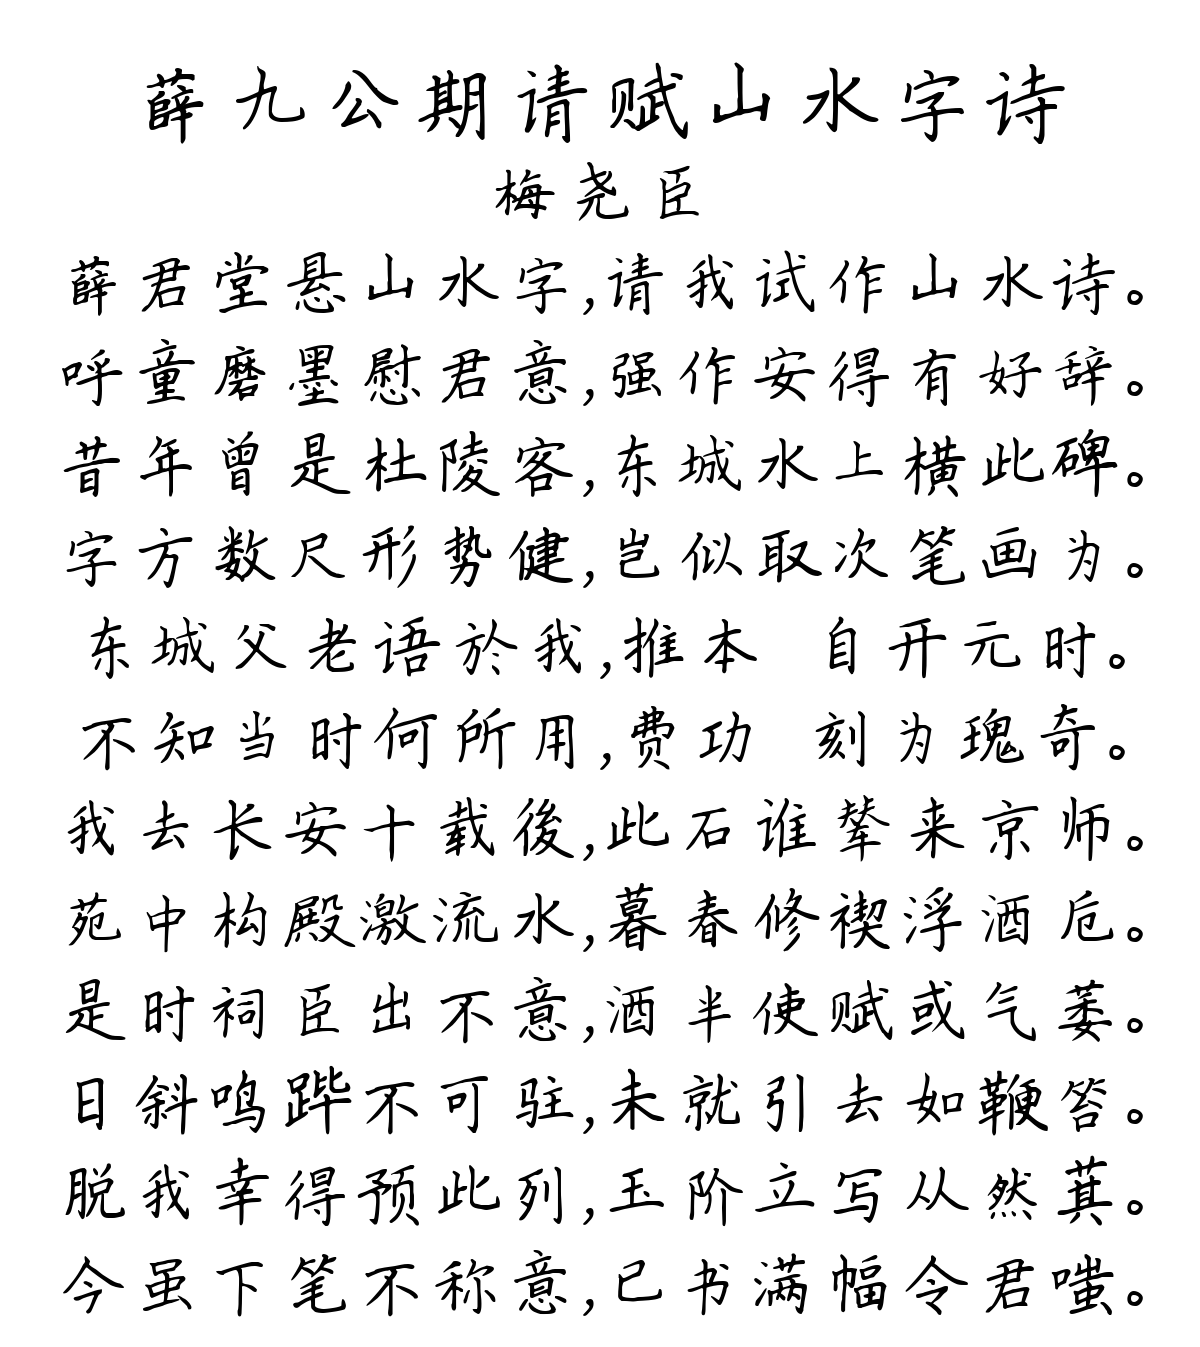 薛九公期请赋山水字诗
梅尧臣
薛君堂悬山水字,请我试作山水诗。
呼童磨墨慰君意,强作安得有好辞。
昔年曾是杜陵客,东城水上横此碑。
字方数尺形势健,岂似取次笔画为。
东城父老语於我,推本 自开元时。
不知当时何所用,费功 刻为瑰奇。
我去长安十载後,此石谁辇来京师。
苑中构殿激流水,暮春修禊浮酒卮。
是时祠臣出不意,酒半使赋或气萎。
日斜鸣跸不可驻,未就引去如鞭笞。
脱我幸得预此列,玉阶立写从然萁。
今虽下笔不称意,已书满幅令君嗤。